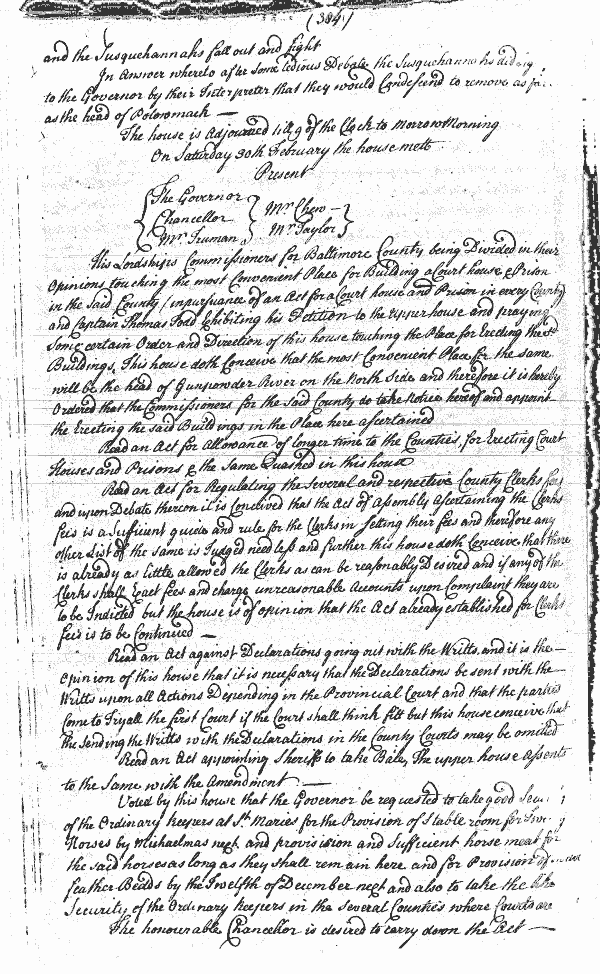 (384)
and the Susquehannahs fall out and fight
In Answer whereto after Some tedious Debate the Susquehannahs did
to the Governor by their Interpreter that they would Condesend to remove as
as the head of Potowmack —
The house is Adjourned till 9 of the Clock to Morrow Morning
On Saturday 20th February the house mett
Present
The Governor
Chancellor
Mr. Truman
Mr. Chew —
Mr. Taylor
His Lordships Commissioners for Baltimore County being Divided in their
Opinions touching the most Convenient Place for Building a Court house & Prison
in the Said County / inpursuance of an Act for a Court house and Prison in every County
and Captain Thomas Todd Exhibiting his Petition to the upper house and praying
Some certain Order and Direction of this house touching the Place for Erecting the sd.
Buildings, This house doth Conceive that the most Convenient Place for the same
will be the head of Gunpowder River on the North Side and therefore it is hereby
Ordered that the Commissioners for the Said County do take Notice hereof and appoint
the Erecting the said Buildings in the Place here ascertained
Read an Act for allowance of longer time to the Counties, for Erecting Court
Houses and Prisons & the Same Quashed in this house
Read an Act for Regulating the Several and respective County Clerks fees
and upon Debate thereon it is Conceived that the Act of Assembly ascertaining the Clerks
fees is a Sufficient guide and rule for the Clerks in setting their fees and therefore any
other List of the same is Judged needless and further this house doth Conceive that there
is already as little allowed the Clerks as can be reasonably Desired and if any of the
Clerks shall Exact fees and charge unreasonable Accounts upon Complaint they are
to be Indicted but the house is of opinion that the Act already established for Clerks
fees is to be Continued —
Read an Act against Declarations going out with the Writts, and it is the —
opinion of this house that it is necessary that the Declarations be sent with the —
Writts upon all Actions Depending in the Provincial Court and that the parties
Come to Tryall the first Court if the Court shall think fitt but this house conceive that
the sending the Writts with the Declarations in the County Courts may be omitted
Read an Act appointing Sheriffs to take Baile, The upper house assents
to the Same with the Amendment —
Voted by this house that the Governor be requested to take good
of the Ordinary Keepers at St. Maries for the Provision of Stable room for
Horses by Michaelmas next and provision and Sufficient horse meat for
the said horses as long as they shall remain here and for Provision of
feather Bedds by the Twelfth of December next and also to take the like
Security of the Ordinary Keepers in the several Counties where Courts are
The honourable Chancellor is desired to carry down the Act —